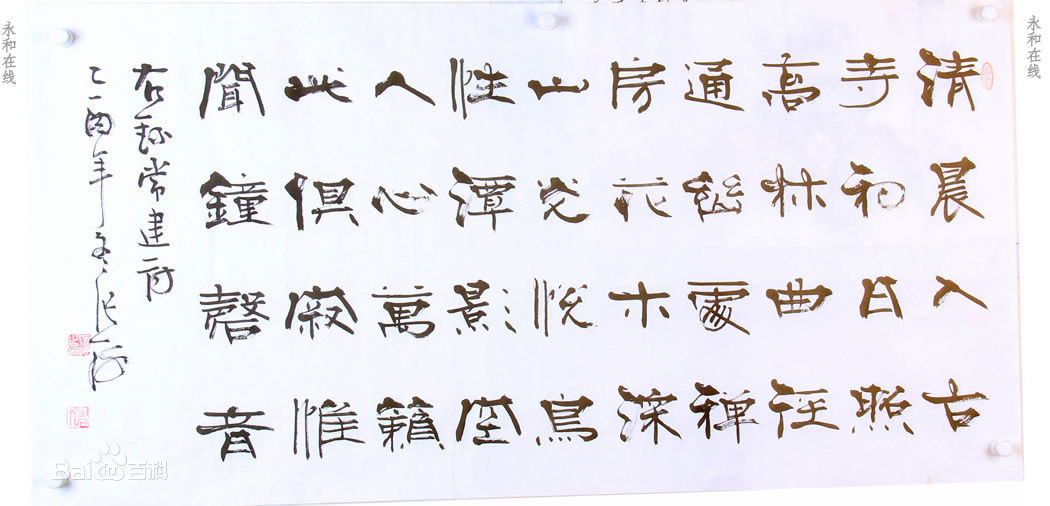 永和在线
清晨入古
寺初日照
高林曲径
通幽處禅
房花木深
山光悦鳥
性潭影空
人心萬籟
此俱寂惟
聞鐘磬音
右錄常建詩
乙酉年冬
永和在线
Bai百科